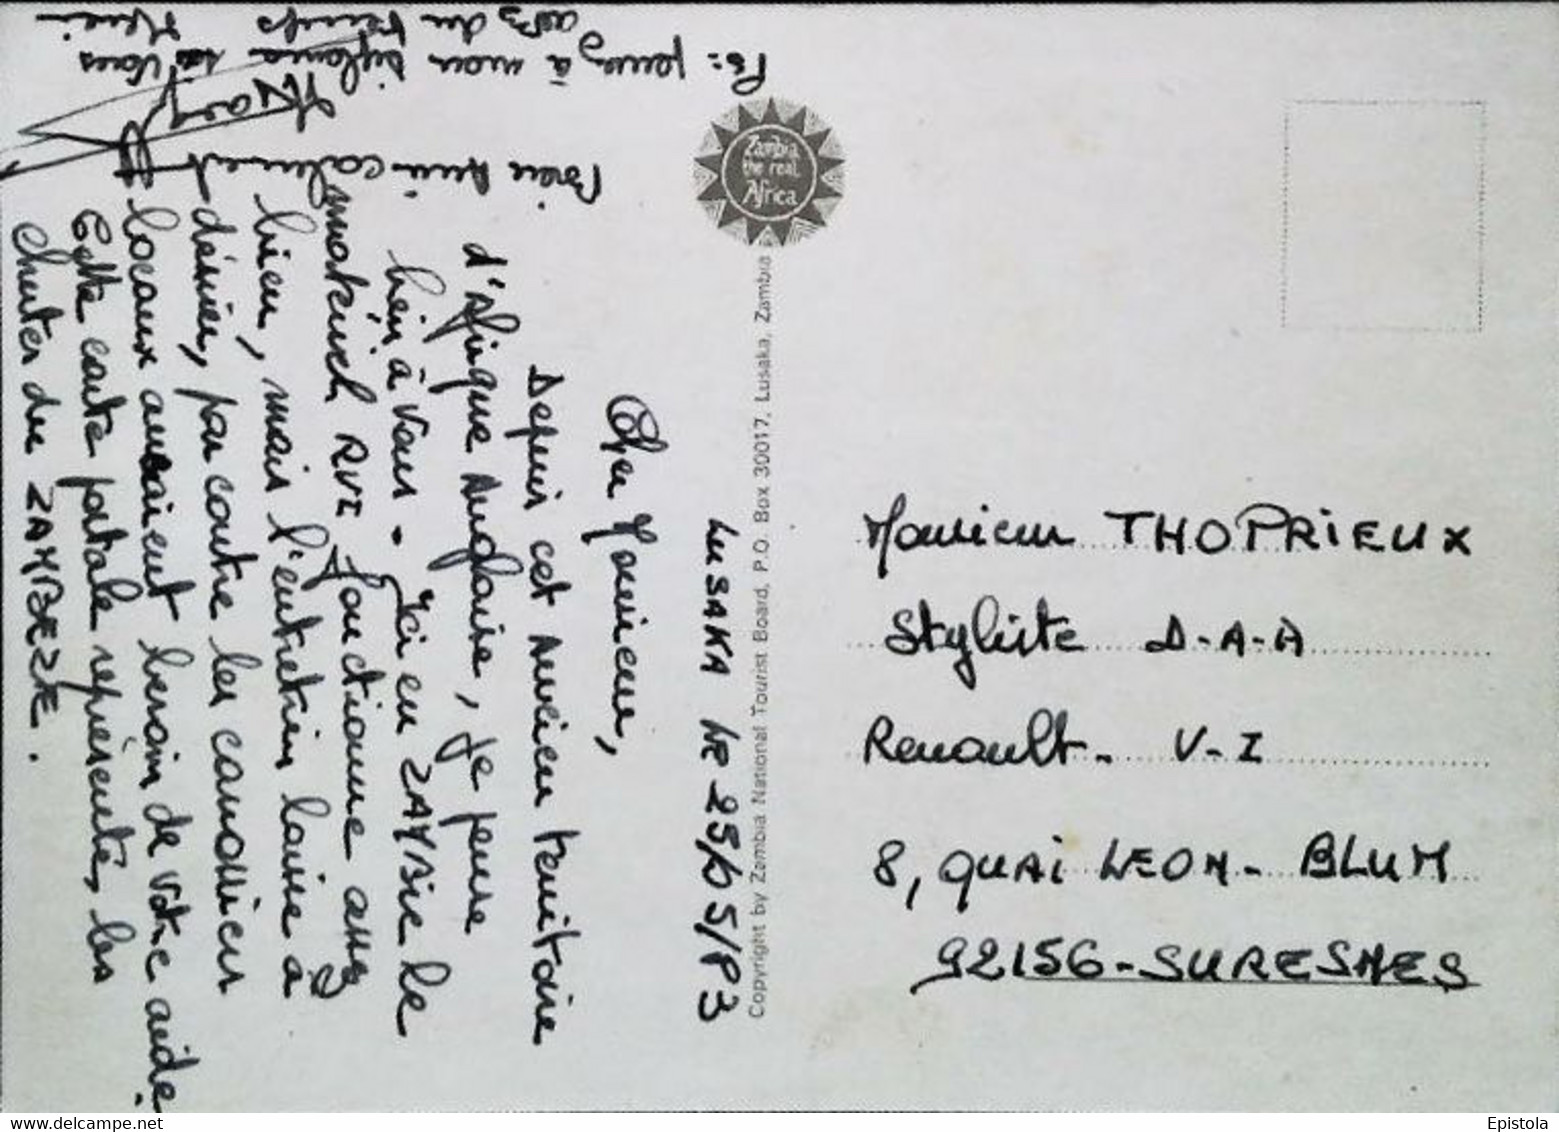 LUSAKA LE 25/05/83
Cher Monsieur,
Depuis cet Ancien territoire
d'Afrique Anglaise, je pense
bien à vous - Ici en ZAMBIE le
matériel RVI fonctionne assez
bien, mais l'entretien laisse à
désirer, par contre les camossiers
locaux auraient besoin de votre aide.
Cette carte postale représente, les
chutes du ZAMBEZE.
Bien Amicalement
PS: pensez à mon diplome si vous
avez du temps Merci
Zambia
the real
Africa
Copyright by Zambia National Tourist Board, P.O. Box 30017, Lusaka, Zambia
Monsieur THOPRIEUX
Styliste D-A-A
Renault- V-I
8, QUAI LEON-BLUM
92156-SURESNES
delcampe.net
Epistola